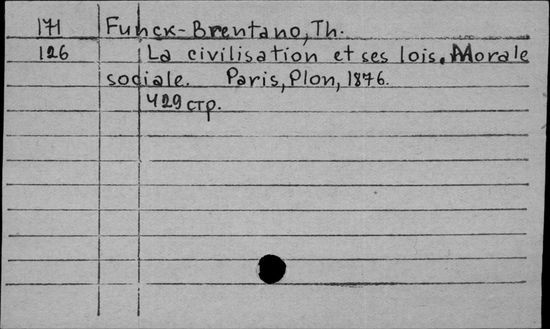 171 Funck-Brentano, Th.
126 La civilisation et ses lois. Morale
sociale. Paris, Plon, 1876.
429 стр.